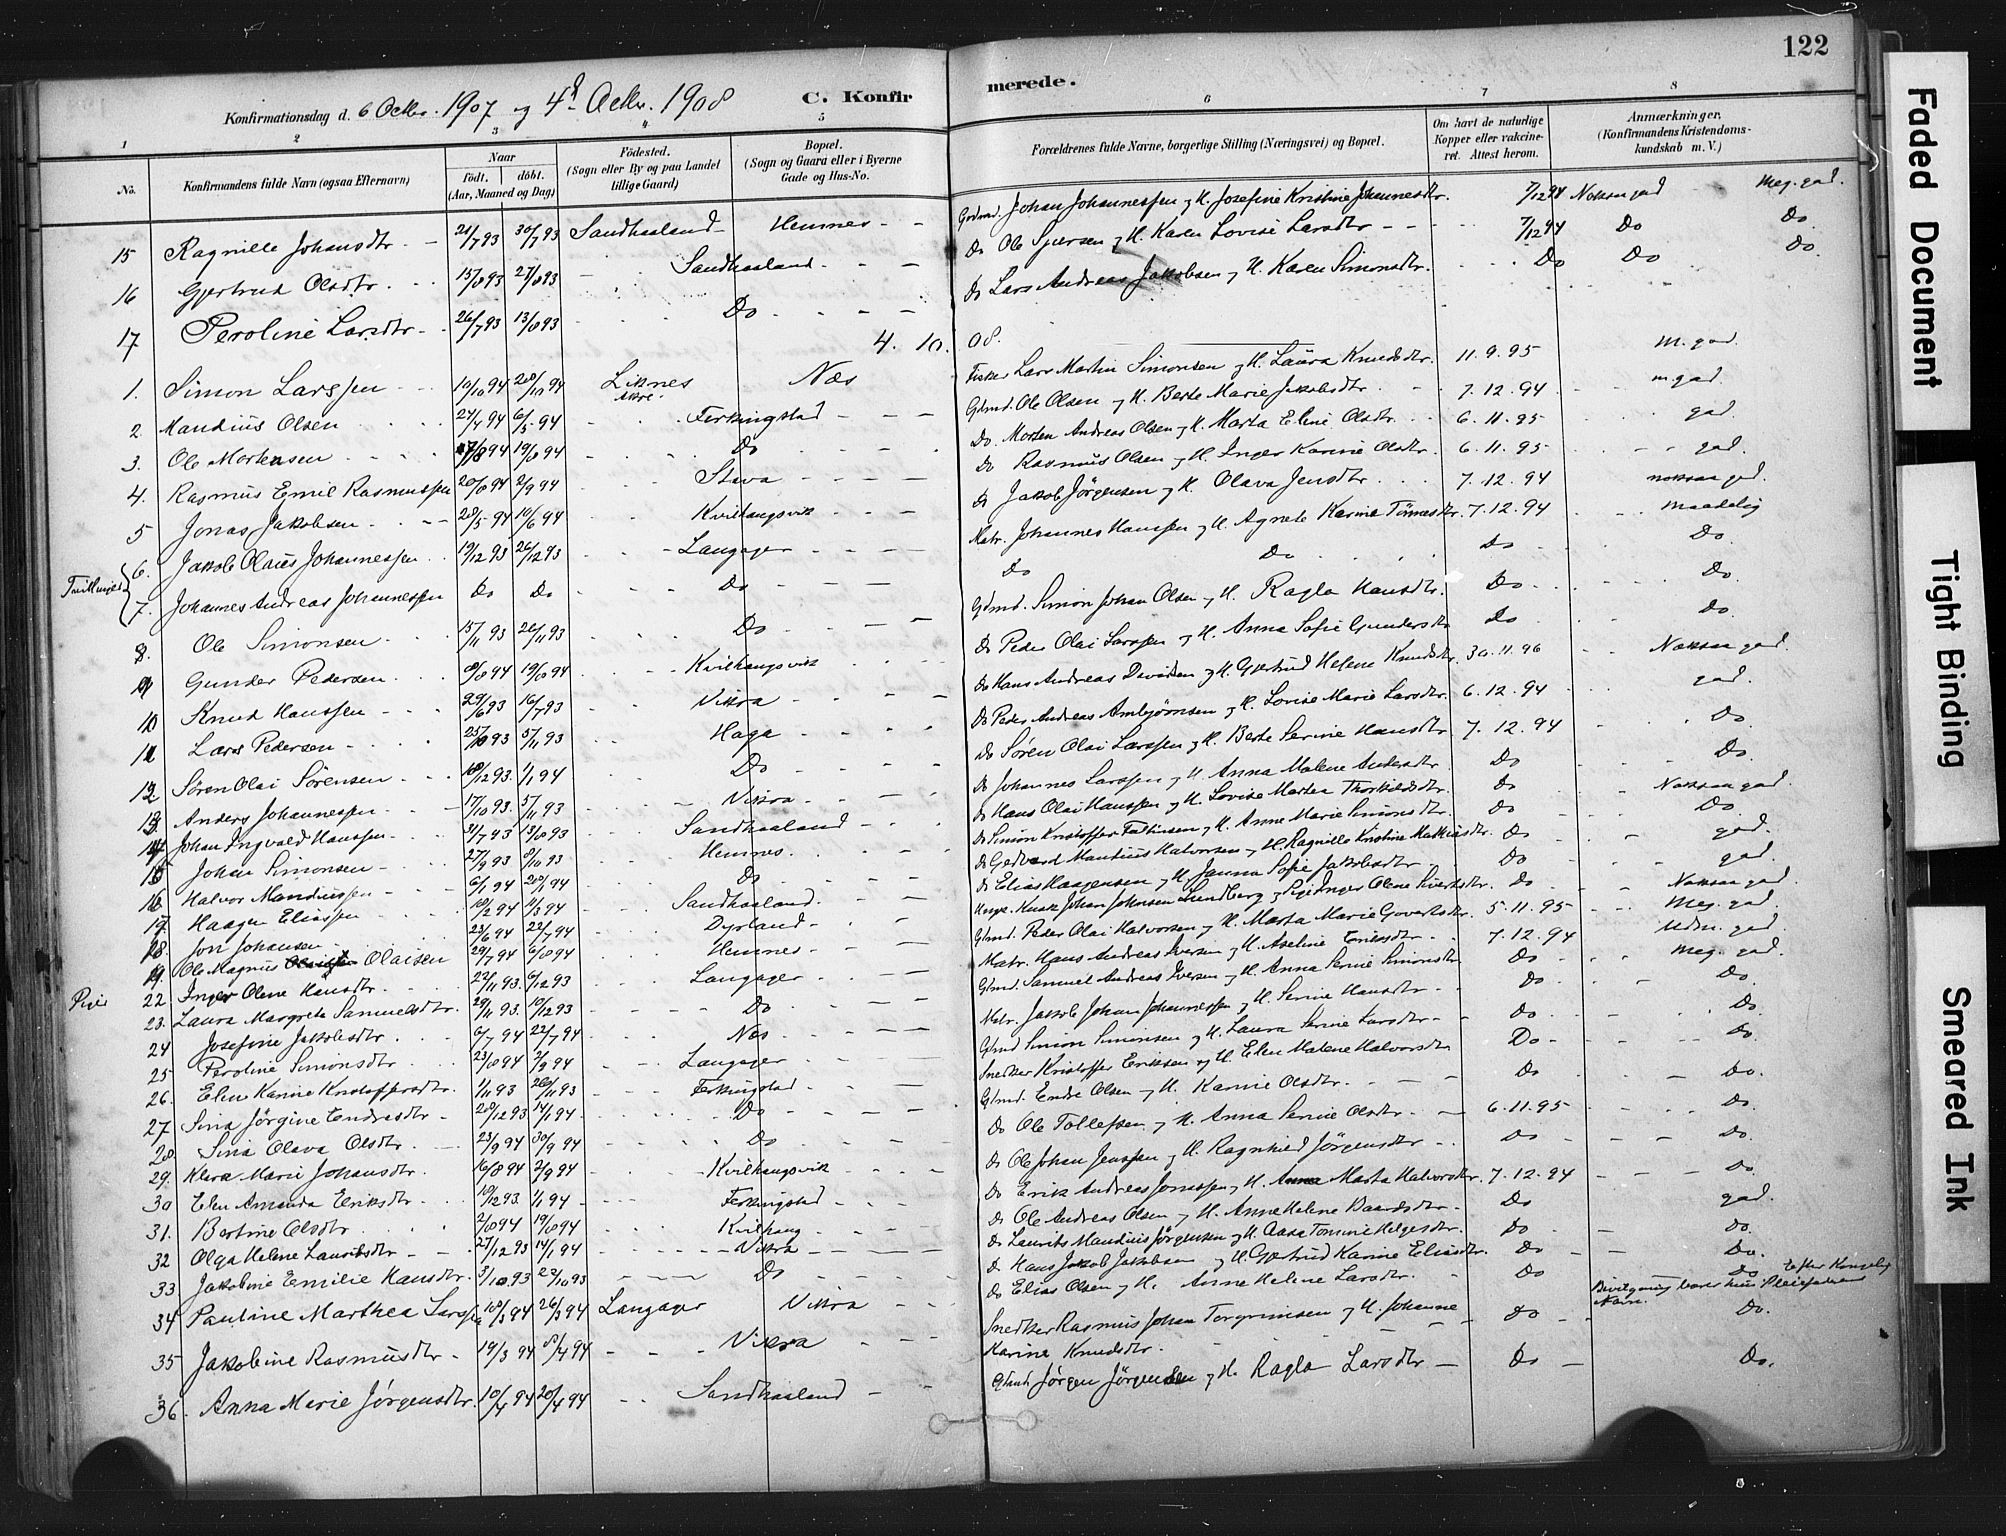 122
Konfirmationsdag d. 6 Octbr. 1907 og 4d Octbr. 1908 C. Konfir merede.
1 2 3 4 5 6 7 8
No. Konfirmandens fulde Navn (ogsaa Efternavn) Naar Födt. döbt. (Aar, Maaned og Dag) Födested. (Sogn eller By og paa Landet tillige Gaard) Bopæl. (Sogn og Gaard eller i Byerne Gade og Hus-No. Forældrenes fulde Navne, borgerlige Stilling (Næringsvei) og Bopæl. Om havt de naturlige Kopper eller vakcineret. Attest herom. Anmærkninger. (Konfirmandens Kristendomskundskab m. V.)
15 Ragnille Johansdtr. 21/7 93 30/7 93 Sandhaaland Hemnes Grdmd. Johan Johannessen og H. Josefine Kristine Johannesdtr. 7/12 94 Noksaa god Meg. god.
16 Gjertrud Olsdtr. 15/8 93 27/8 93 Sandhaaland Do Ole Sjursen og H. Karen Lovise Larsdtr 7/12 94 Do Do
17 Peroline Larsdtr 26/7 93 13/8 93 Do Do Lars Andreas Jakobsen og H. Karen Simonsdtr. Do Do Do
4. 10. 08.
1. Simon Larssen 10/10 94 28/10 94 Liknes Akre. Næs Fisker Lars Martin Simonsen og H. Laura Knudsdtr. 11.9.95 m. god.
2. Mandius Olsen 24/4 94 6/5 94 Ferkingstad Gdmd. Ole Olsen og H. Berte Marie Jakobsdtr. 7.12.94 m. god.
3. Ole Mortensen 17/8 94 19/8 94 Do Do Morten Andreas Olsen og H. Marta Eline Olsdtr. 6.11.95 god
4. Rasmus Emil Rasmussen 20/8 94 2/9 94 Stava Do Rasmus Olsen og H. Inger Karine Olsdtr. 6.11.95 god.
5 Jonas Jakobsen 28/5 94 10/6 94 Kvilhaugsvik Do Jakob Jörgensen og H. Olava Jensdtr. 7.12.94 noksaa god.
6. Jakob Olaus Johannessen 19/12 93 26/12 93 Langager Matr. Johannes Hanssen og H. Agnete Karine Tönnesdtr. 7.12.94 maadelig
Tvillinger
7. Johannes Andreas Johannessen Do Do Do Do Do Do Do.
8. Ole Simonsen 15/11 93 26/11 93 Do Gdmd. Simon Johan Olsen og H. Ragla Hansdtr. Do Do.
9 Gunder Pedersen 8/8 94 19/8 94 Kvilhaugsvik Do Peder Olai Larssen og H. Anna Sofie Gundersdtr Do Do.
10 Knud Hanssen 29/6 93 16/7 93 Vikra Do Hans Andreas Davidsen og H. Gjertrud Helene Knudsdtr. 30.11.96 Noksaa god.
11 Lars Pedersen 25/10 93 5/11 93 Haga Do Peder Andreas Ambjörnsen og H. Lovise Marie Larsdtr. 6.12.94 god.
12 Sören Olai Sörensen 18/12 93. 1/1 94 Do Do Sören Olai Larssen og H. Berte Serine Hansdtr 7.12.94 Do
13 Anders Johannessen 17/10 93. 5/11 93 Vikra Do Johannes Larssen og H. Anna Malene Andersdtr Do Do.
14 Johan Ingvald Hanssen 31/7 93 13/8 93 Sandhaaland Do Hans Olai Hanssen og H. Lovise Martea Thorkildsdtr. Do Noksaa god.
15 Johan Simonsen 27/9 93 8/10 93 Hemnes. Do Simon Kristoffer Tollessen og H. Anne Marie Simonsdtr. Do Do
16 Halvor Mandiussen 6/1 94 28/1 94 Do Do Gedvard Mandius Halvorsen og H. Ragnille Kristine Mathiasdtr. Do god.
17. Haagen Eliassen 18/2 94 11/3 94 Sandhaaland. Do Elias Haagensen og H. Janna Sofie Jakobsdtr Do god.
18. Jon Johansen 23/6 94 22/7 94 Dyrland Ungk. Knut Johan Johnsen Lundberg og Pige Inger Olene Sivertsdtr. Do Noksaa god.
19. Ole Magnus Olaisen 29/7 94 6/8 94 Hemnes Gdmd. Peder Olai Halvorsen og H. Marta Marie Govertsdtr. 5.11.95 Meg. god.
Piger
22. Inger Olene Hansdtr. 22/11 93. 6/12 93 Langager Matr. Hans Andreas Iversen og H. Aseline Eriksdtr. 7.12.94 Udm. god.
23. Laura Margrete Samuelsdtr. 29/11 93. 10/12 93 Do Gdmd. Samuel Andreas Iversen og H. Anna Serine Simonsdtr Do Meg. god.
24 Josefine Jakobsdtr. 6/7 94 22/7 94 Næs Matr. Jakob Johan Johannessen og H. Serine Hansdtr Do Do
25 Peroline Simonsdtr 23/8 94 2/9 94 Langager Gdmd Simon Simonsen og H. Laura Serine Larsdtr Do Do
26. Elen Karine Kristoffersdtr. 1/11 93 26/11 93 Ferkingstad Snedker Kristoffer Eriksen og H. Elen Malene Halvorsdtr Do Do
27 Sina Jörgine Endresdtr 28/12 93 14/1 94 Do Gdmd. Endre Olsen og H. Karine Olsdtr. Do Do.
28 Sina Olava Olsdtr. 23/9 94 30/9 94 Do Do Ole Tollefsen og H. Anna Serine Olsdtr 6.11.95 Do.
29. Klara Marie Johansdtr. 16/8 94 2/9 94 Kvilhaugsvik Do Ole Johan Jenssen og H. Ragnhild Jörgensdtr Do Do.
30 Elen Amanda Eriksdtr 10/12 93. 1/1 94 Ferkingstad Do Erik Andreas Jonassen og H. Marta Halvorsdtr. 7.12.94 Do.
31. Bertine Olsdtr 2/8 94 19/8 94 Kvilhaug Do Ole Andreas Olsen og H. Anne Helene Baardsdtr Do god.
32 Olga Helene Lauritsdtr 27/12 93 14/1 94 Vikra Do Laurits Mandius Jörgensen og H. Aasa Tomine Helgesdtr. Do Do.
33 Jakobine Emilie Hansdtr. 3/10 93 22/10 93 Do Do Hans Jakob Jakobsen og H. Gjertrud Karine Eliasdtr. Do Do.
34 Pauline Marthea Larssen 18/3 94 26/3 94 Langager Vikra Do Elias Olsen og H. Anne Helene Larsdtr. Do Do Efter Kongelig Bevilgning bærer hun Pleiefaderens Navn.
35 Jakobine Rasmusdtr 19/3 94 8/4 94 Vikra Snedker Rasmus Johan Torgrimsen og H. Johanne Karine Knudsdtr. Do Do.
36. Anna Marie Jörgensdtr. 10/4 94 20/4 94 Sandhaaland Gdmd. Jörgen Jörgensen og H. Ragla Larsdtr Do Do.
Faded Document
Tight Binding
Smeared Ink